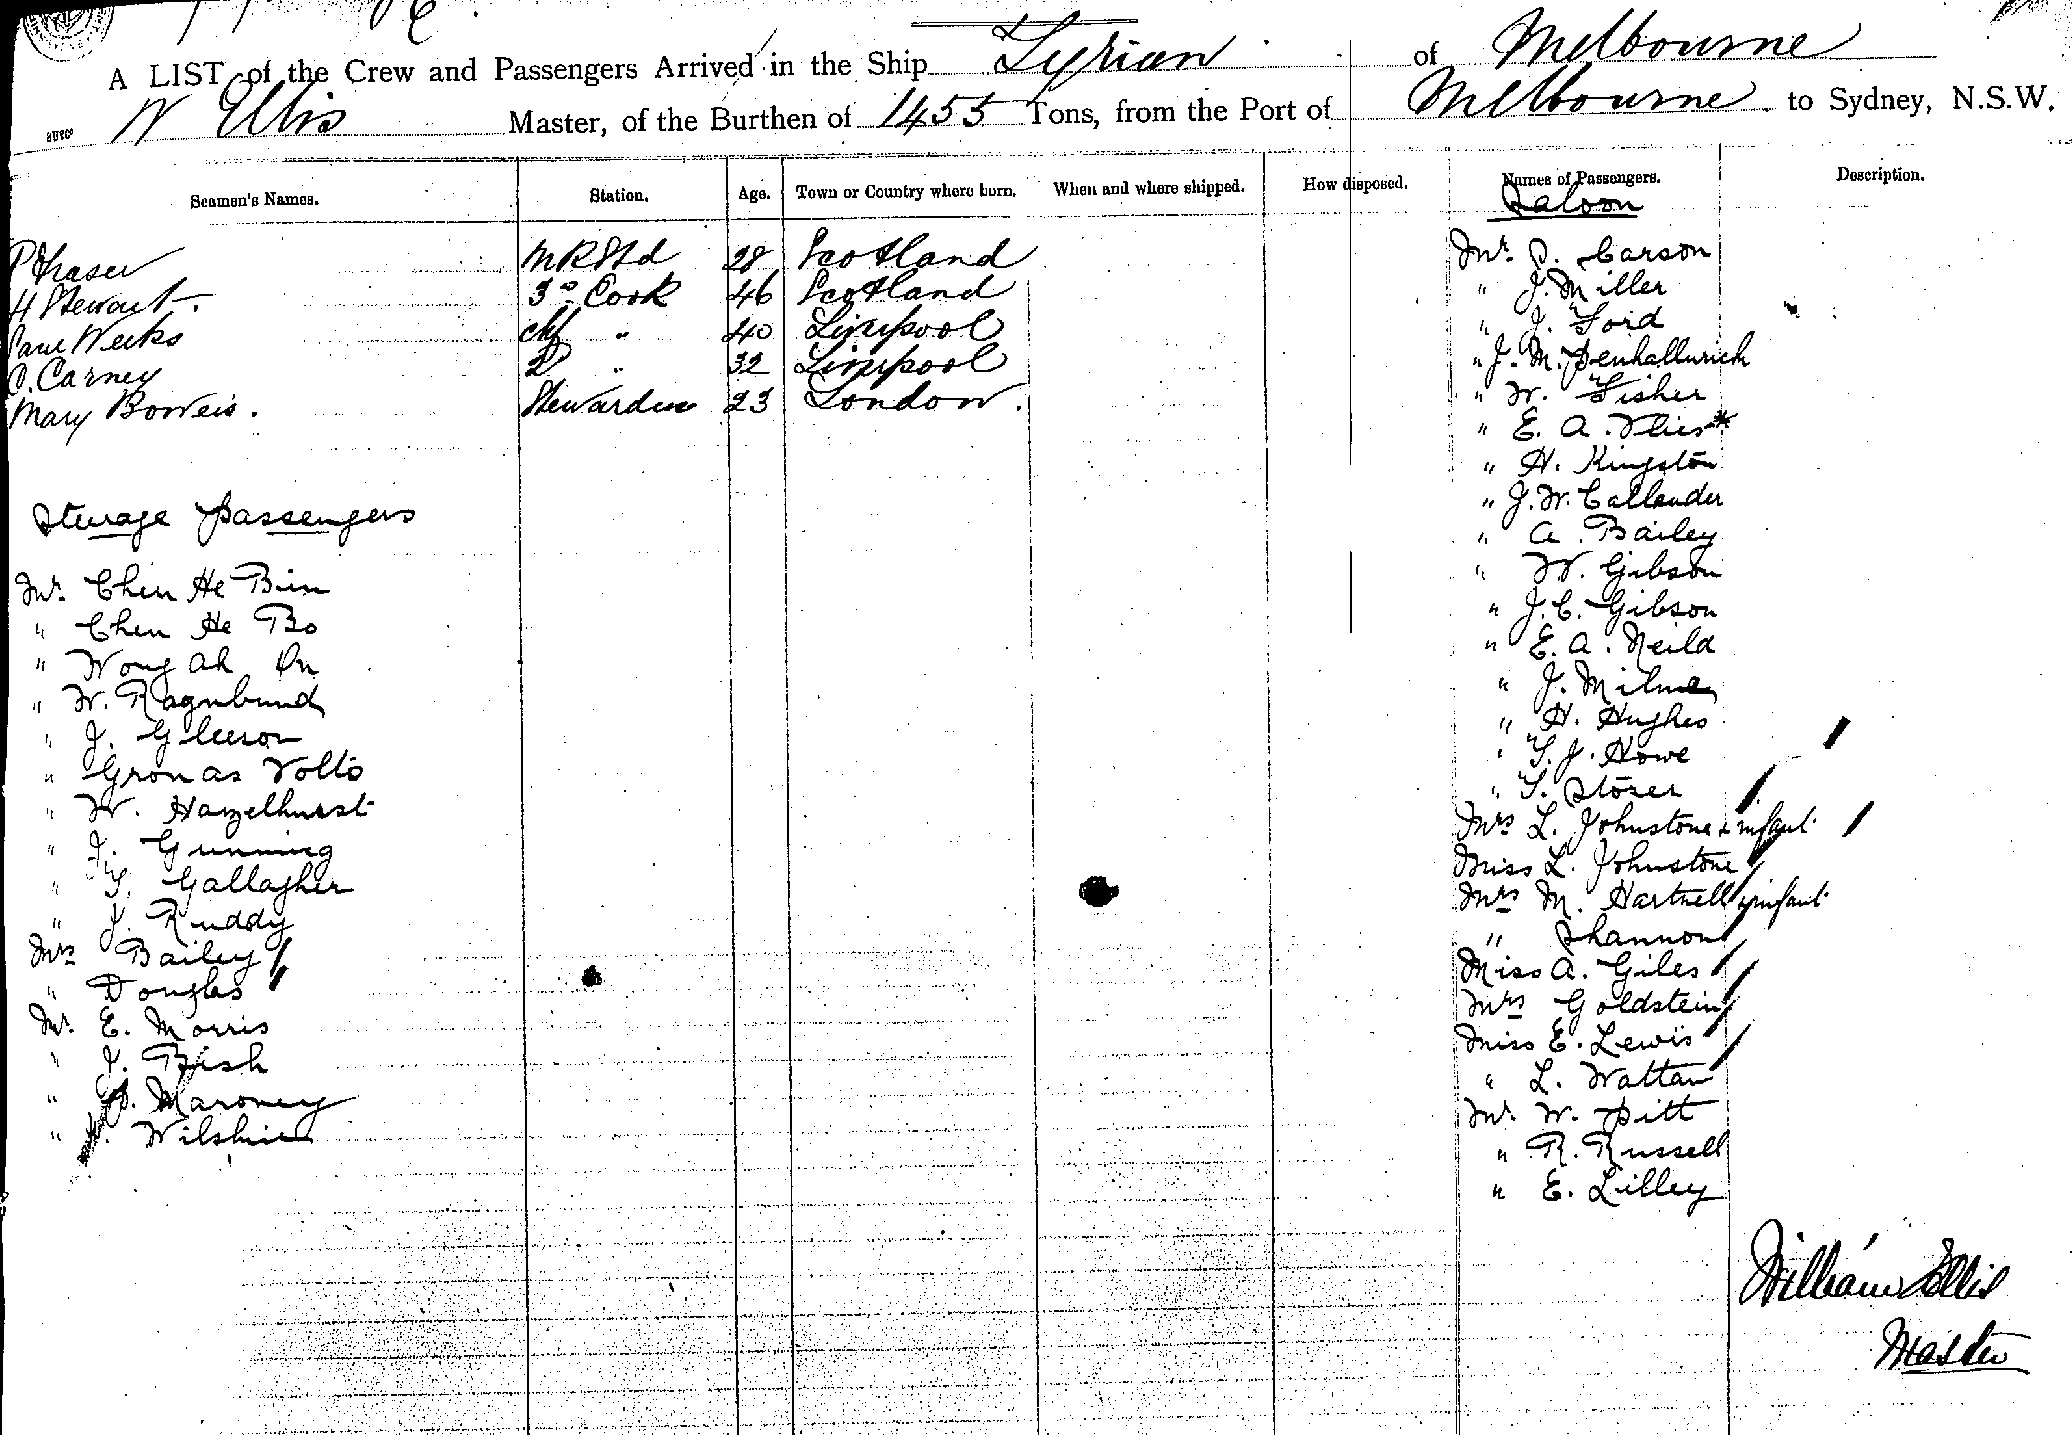 A LIST of the Crew and Passengers Arrived in the Ship Tyrian of Melbourne
W Ellis Master, of the Burthen of 1455 Tons, from the Port of Melbourne to Sydney, N.S.W.
Seamen's Names. Station. Age. Town or Country where born. When and where shipped. How disposed. Names of Passengers. Description.
Saloon
P Fraser 28 Scotland
H Stewart 3rd Cook 46 Scotland
Weeks chf " 40 Liverpool
Carney 2 " 32 Liverpool
Mary Stewardess 23 London.
Steerage Passengers
Mr. Chen He Bun
" Chen He Bo
" Wong Ah On
" W. Ragnbund
" J. Gleeson
" Gronas Volto
" W. Hazelhurst
" J. Gunning
" T. Gallagher
" J. Ruddy
Mrs Bailey
" Douglas
Mr. E. Morris
" J. Bish
" Maroney
" Wilshire
Mr. D. Carson
" J. Miller
" J. Ford
" J. M. Penhallurick
" W. Fisher
" E. A. *
" H. Kingston
" J. W. Callender
" A. Bailey
" W. Gibson
" J. C. Gibson
" E. A. Neild
" J. Milne
" H. Hughes
" T. J. Howe
" T. Storer
Mrs L. Johnstone & infant
Miss L. Johnstone
Mrs M. Hartnell & infant
" Shannon
Miss A. Giles
Mrs Goldstein
Miss E. Lewis
" L. Wattan
Mr. W. Pitt
" R. Russell
" E. Lilley
William Ellis
Master